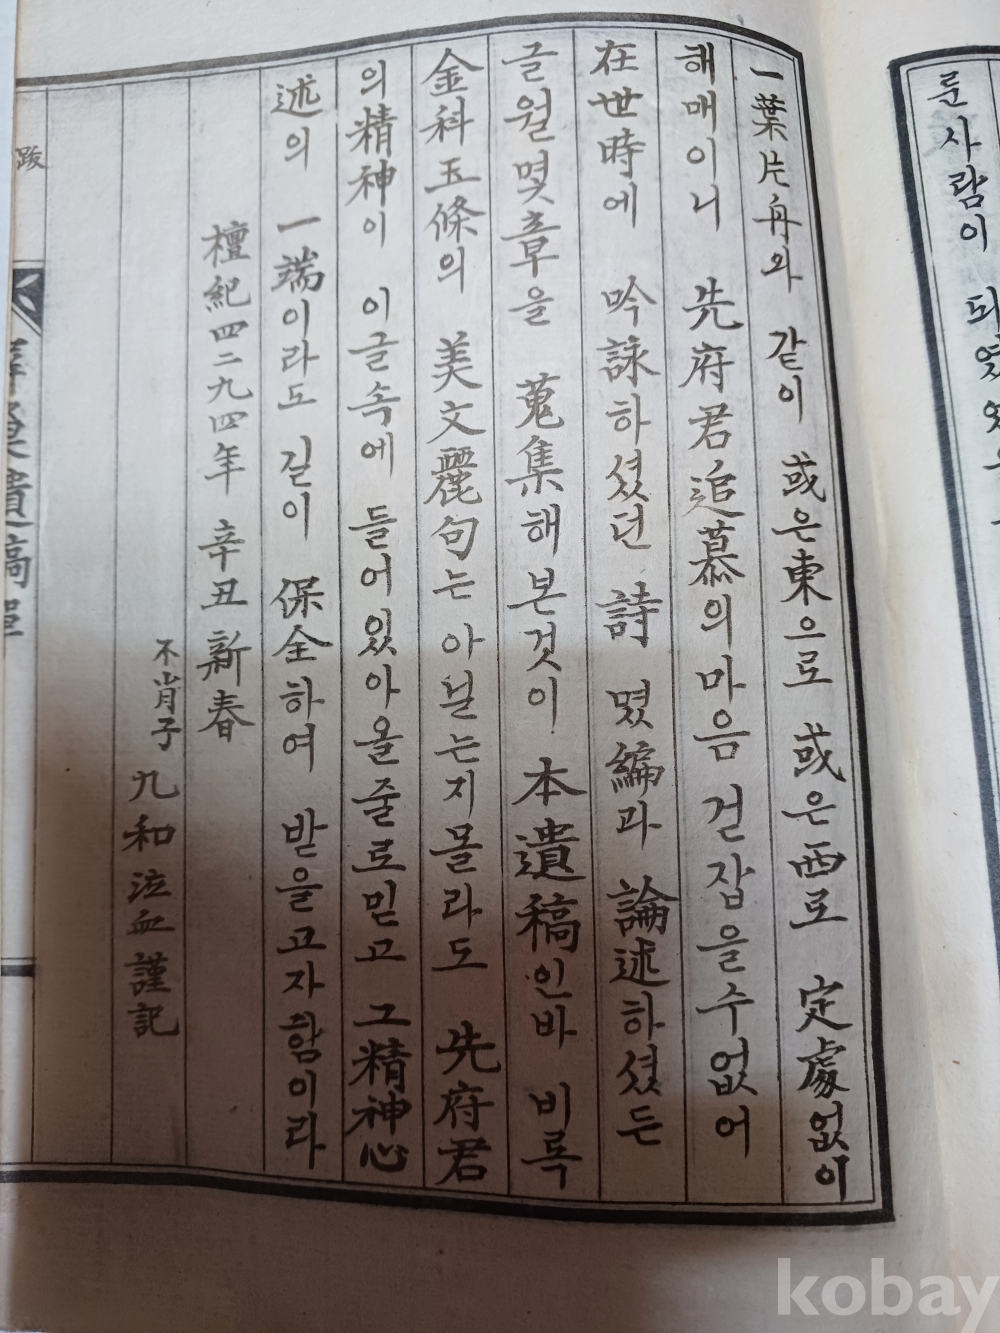 룬사람이 되었
一葉片舟와 같이 或은東으로 或은西로 定處없이
해매이니 先府君追慕의마음 걷잡을수없어
在世時에 吟詠하셨던 詩 몇編과 論述하셨든
글월몇章을 蒐集해본것이 本遺稿인바 비록
金科玉條의 美文麗句는 아닐는지몰라도 先府君
의精神이 이글속에 들어있아올줄로믿고 그精神心
述의 一端이라도 길이 保全하여 받을고자함이라
檀紀四二九四年 辛丑新春
不肖子 九和 泣血謹記
跋
遺稿單
kobay